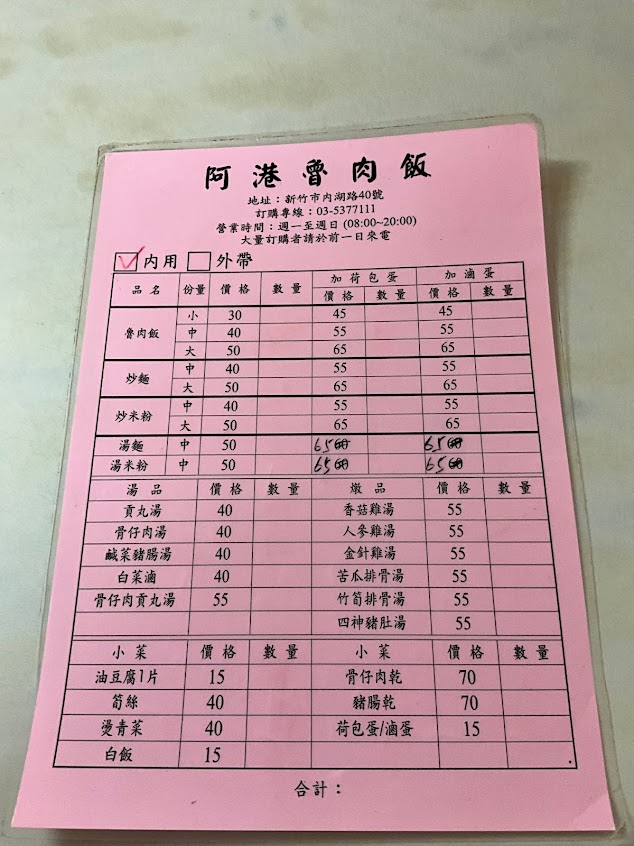 阿港魯肉飯
地址：新竹市內湖路40號
訂購專線：03-5377111
營業時間：週一至週日 (08:00~20:00)
大量訂購者請於前一日來電
內用 外帶
品名 份量 價格 數量 加荷包蛋 加滷蛋
價格 數量 價格 數量
魯肉飯 小 30 45 45
中 40 55 55
大 50 65 65
炒麵 中 40 55 55
大 50 65 65
炒米粉 中 40 55 55
大 50 65 65
湯麵 中 50 65 60 65 60
湯米粉 中 50 65 60 65 60
湯品 價格 數量 燉品 價格 數量
貢丸湯 40 香菇雞湯 55
骨仔肉湯 40 人參雞湯 55
鹹菜豬腸湯 40 金針雞湯 55
白菜滷 40 苦瓜排骨湯 55
骨仔肉貢丸湯 55 竹筍排骨湯 55
四神豬肚湯 55
小菜 價格 數量 小菜 價格 數量
油豆腐1片 15 骨仔肉乾 70
筍絲 40 豬腸乾 70
燙青菜 40 荷包蛋/滷蛋 15
白飯 15
合計：